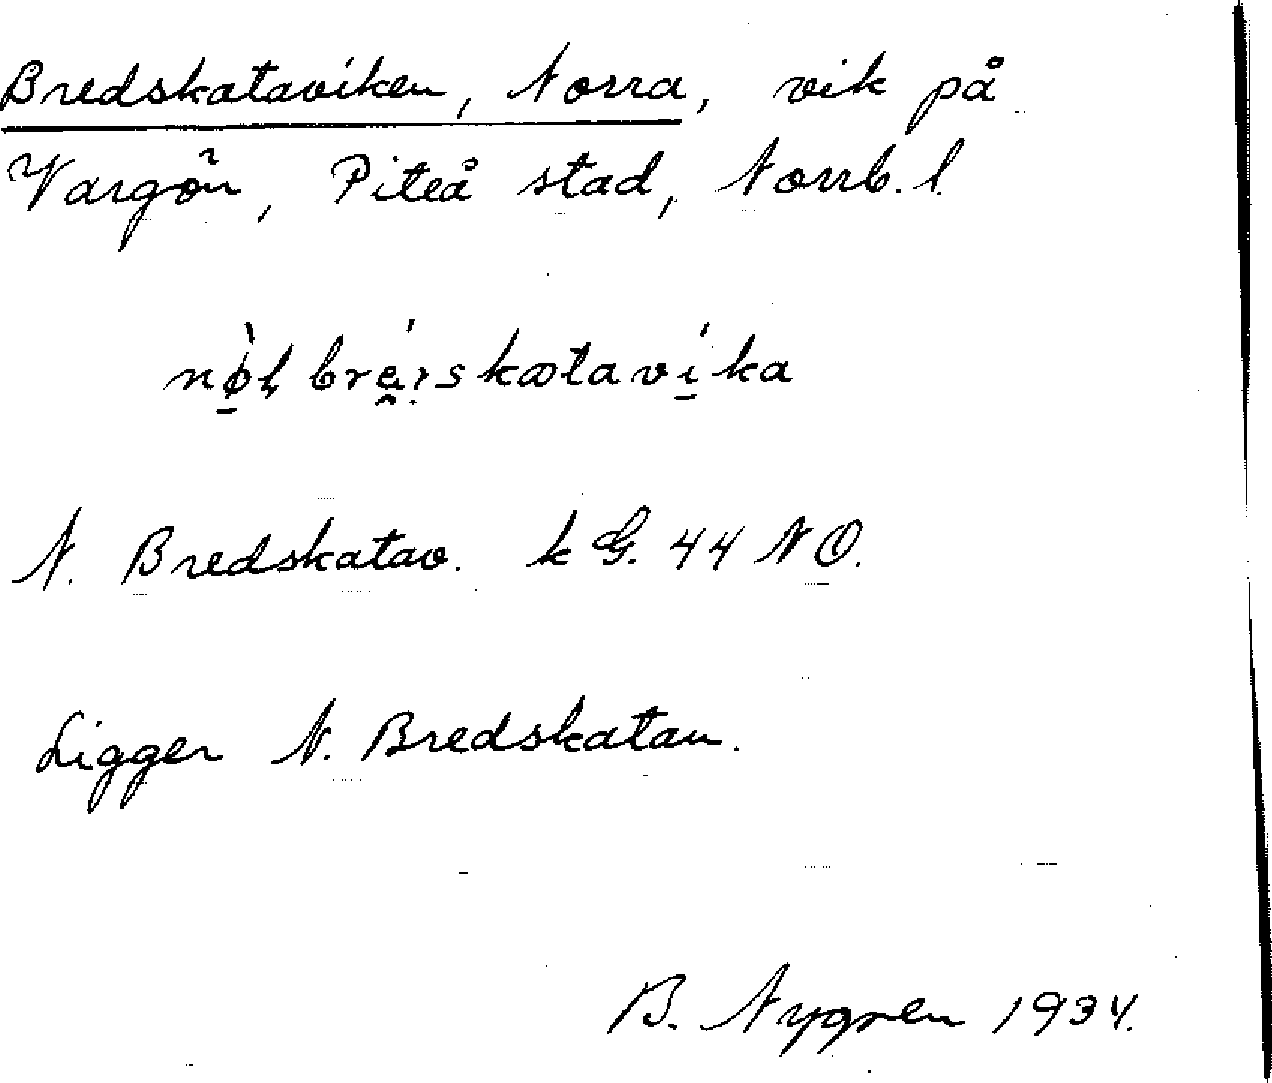 Bredskataviken, Norra, vik på
Vargön, Piteå stad, Norrb. l.
N. Bredskatav. k G. 44 NO.
Ligger N. Bredskatan.
B. Nygren 1934.